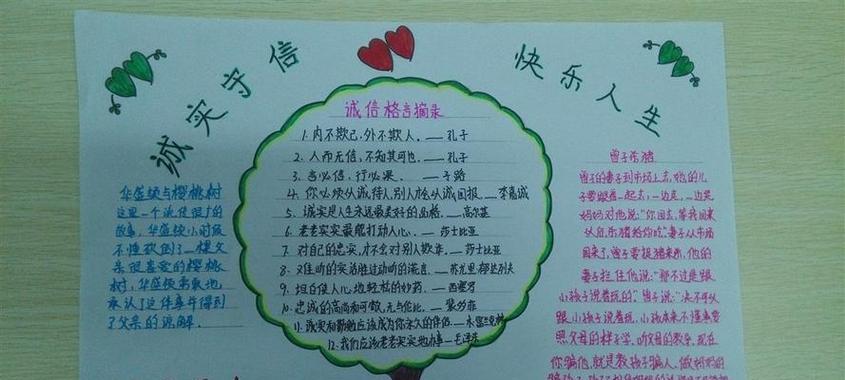 诚实守信
快乐人生
诚信格言摘录
1. 内不欺己,外不欺人。——孔子
2. 人而无信,不知其可也。——孔子
3. 言必信,行必果。——子路
4. 你必须以诚待人,别人才会以诚回报。——李嘉诚
5. 诚实是人生永远最美好的品格。——高尔基
6. 老老实实最能打动人心。——莎士比亚
7. 对自己的忠实,才不会对别人欺诈。——莎士比亚
8. 难听的实话胜过动听的谎言。——苏尤里·柳比列夫
9. 坦白使人心地轻松的妙药。——西塞罗
10. 忠诚的高尚和可敬,无与伦比。——裴多菲
11. 诚实和勤勉应该成为你永久的伴侣。——富兰克林
12. 我们应该老老实实地办事——毛泽东
华盛顿与樱桃树
这里一个流传很广的
故事,华盛顿小时候
不懂砍倒了一棵父
亲很喜爱的樱桃
树,华盛顿勇敢地
承认了这件事并得到
了父亲的谅解.
曾子杀猪
曾子的妻子到市场上去,她的儿
子要跟着一起去,一边走,一边哭
妈妈对他说:“你回去,等我回来
以后,杀猪给你吃”妻子从市场
回来了,曾子要捉猪来杀,他的
妻子拦住他说:“那不过是跟
小孩子说着玩的”曾子说:“决不可以
跟小孩子说着玩,小孩本来不懂事,要
照父母的样子学,听父母的教导,现在
你骗他,就是教孩子骗人,做妈妈的